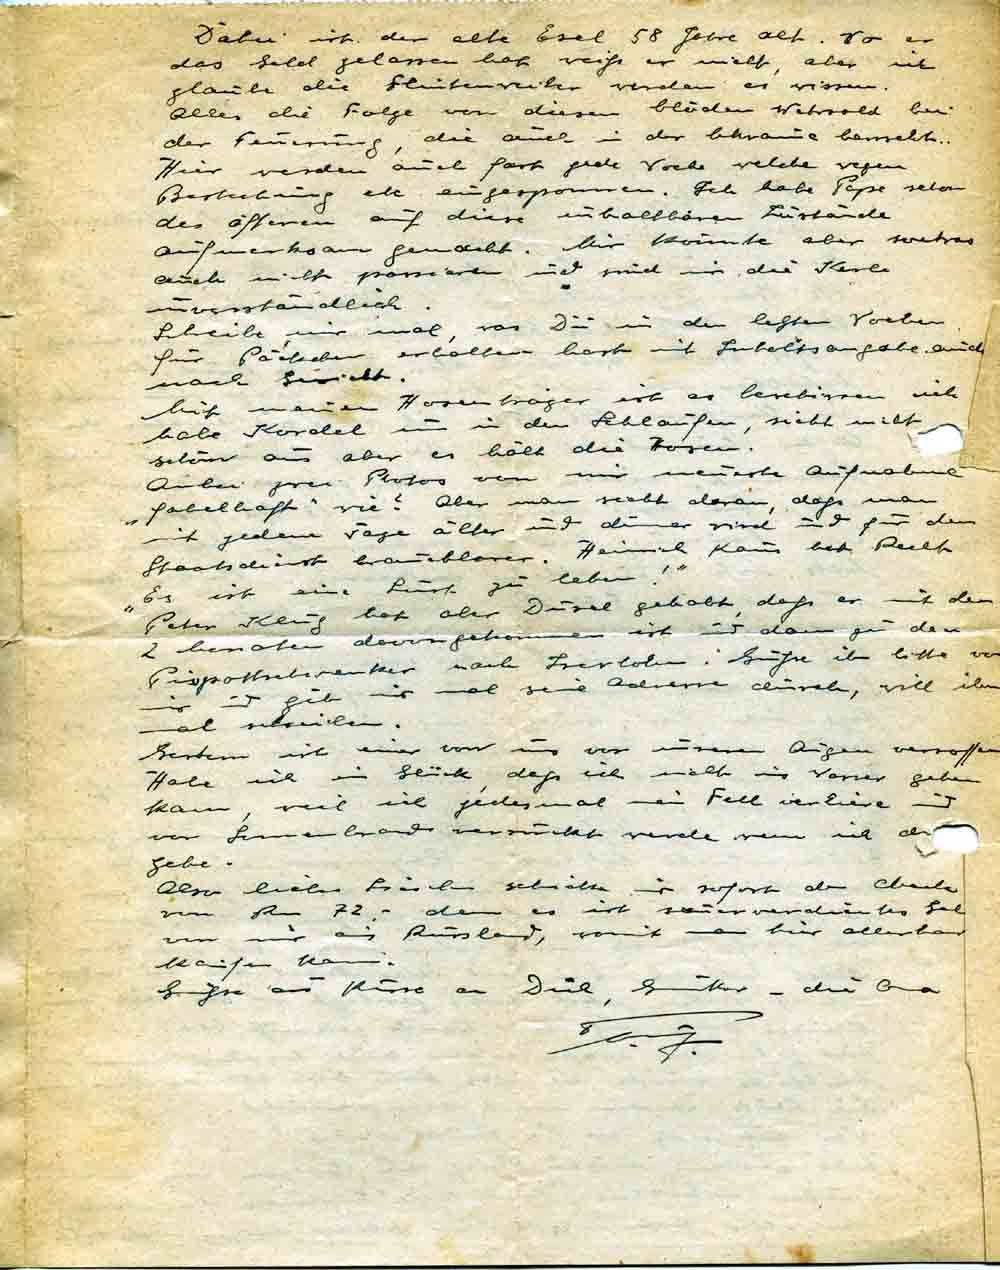 Dabei ist der alte Esel 58 Jahre alt. Wo er
das Geld gelassen hat weiss er nicht, aber ich
glaube die werden es wissen.
Alles die Folge von diesem blöden bei
der Feuerung, die auch in der Ukraine herrscht..
Hier werden auch fast jede Woche welche wegen
Bestechung etc eingesponnen. Ich habe Pape schon
des öfteren auf diese unhaltbaren Zustände
aufmerksam gemacht. Mir könnte aber sowas
auch nicht passieren und sind mir die Kerle
unverständlich.
Schreibe mir mal, was Du in den letzten Wochen
für Päckchen erhalten hast mit Inhaltsangabe auch
nach Gewicht.
Mit meinen Hosenträger ist es beschissen ich
habe Kordel um in den Schlaufen, sieht nicht
schön aus aber es hält die Hosen.
Anbei zwei Photos von mir neueste Aufnahme
"fabelhaft" wie? Aber man sieht daran, dass man
mit jedem Tage älter und dünner wird und für den
Staatsdienst brauchbarer. Heinrich hat Recht
"Es ist eine Lust zu leben!"
Peter Klug hat aber Dusel gehabt, dass er mit den
2 Monaten davongekommen ist und dann zu den
nach Iserlohn. Grüsse ihn bitte von
mir und gib mir mal seine Adresse durch, will ihm
mal schreiben.
Gestern ist einer von uns vor unseren Augen versoffen
Habe ich ein Glück, dass ich nicht ins Wasser gehen
kann, weil ich jedesmal mein Fell verliere und
vor Sonnenbrand verrückt werde wenn ich
gehe.
Also liebes schicke mir sofort den Check
von Rm 72,- denn es ist sauerverdientes
von mir aus Russland, womit man hier allerhand
kaufen kann.
Grüsse und Küsse an Dich, - die Oma